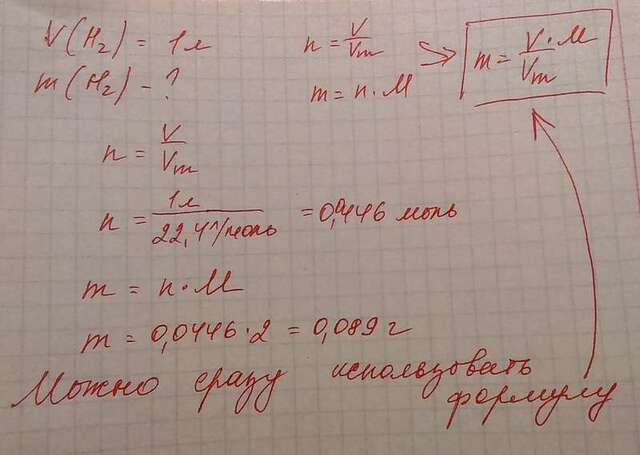 V(H₂) = 1л
m(H₂) - ?
n = V/Vm
m = n · M
m = V · M/Vm
n = V/Vm
n = 1л/22,4 л/моль = 0,0446 моль
m = n · M
m = 0,0446 · 2 = 0,089 г
Можно сразу использовать
формулу